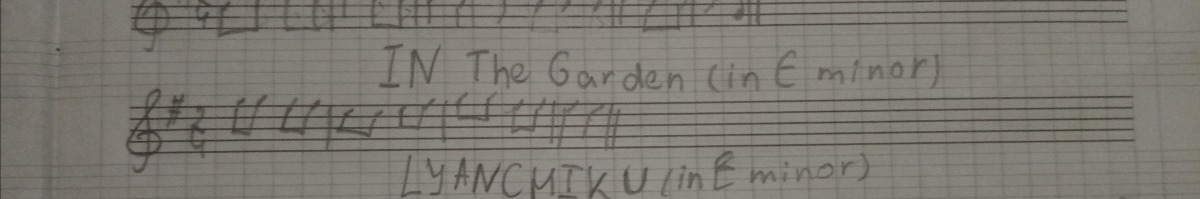 IN The Garden (in E minor)
LYANCHIKU (in E minor)